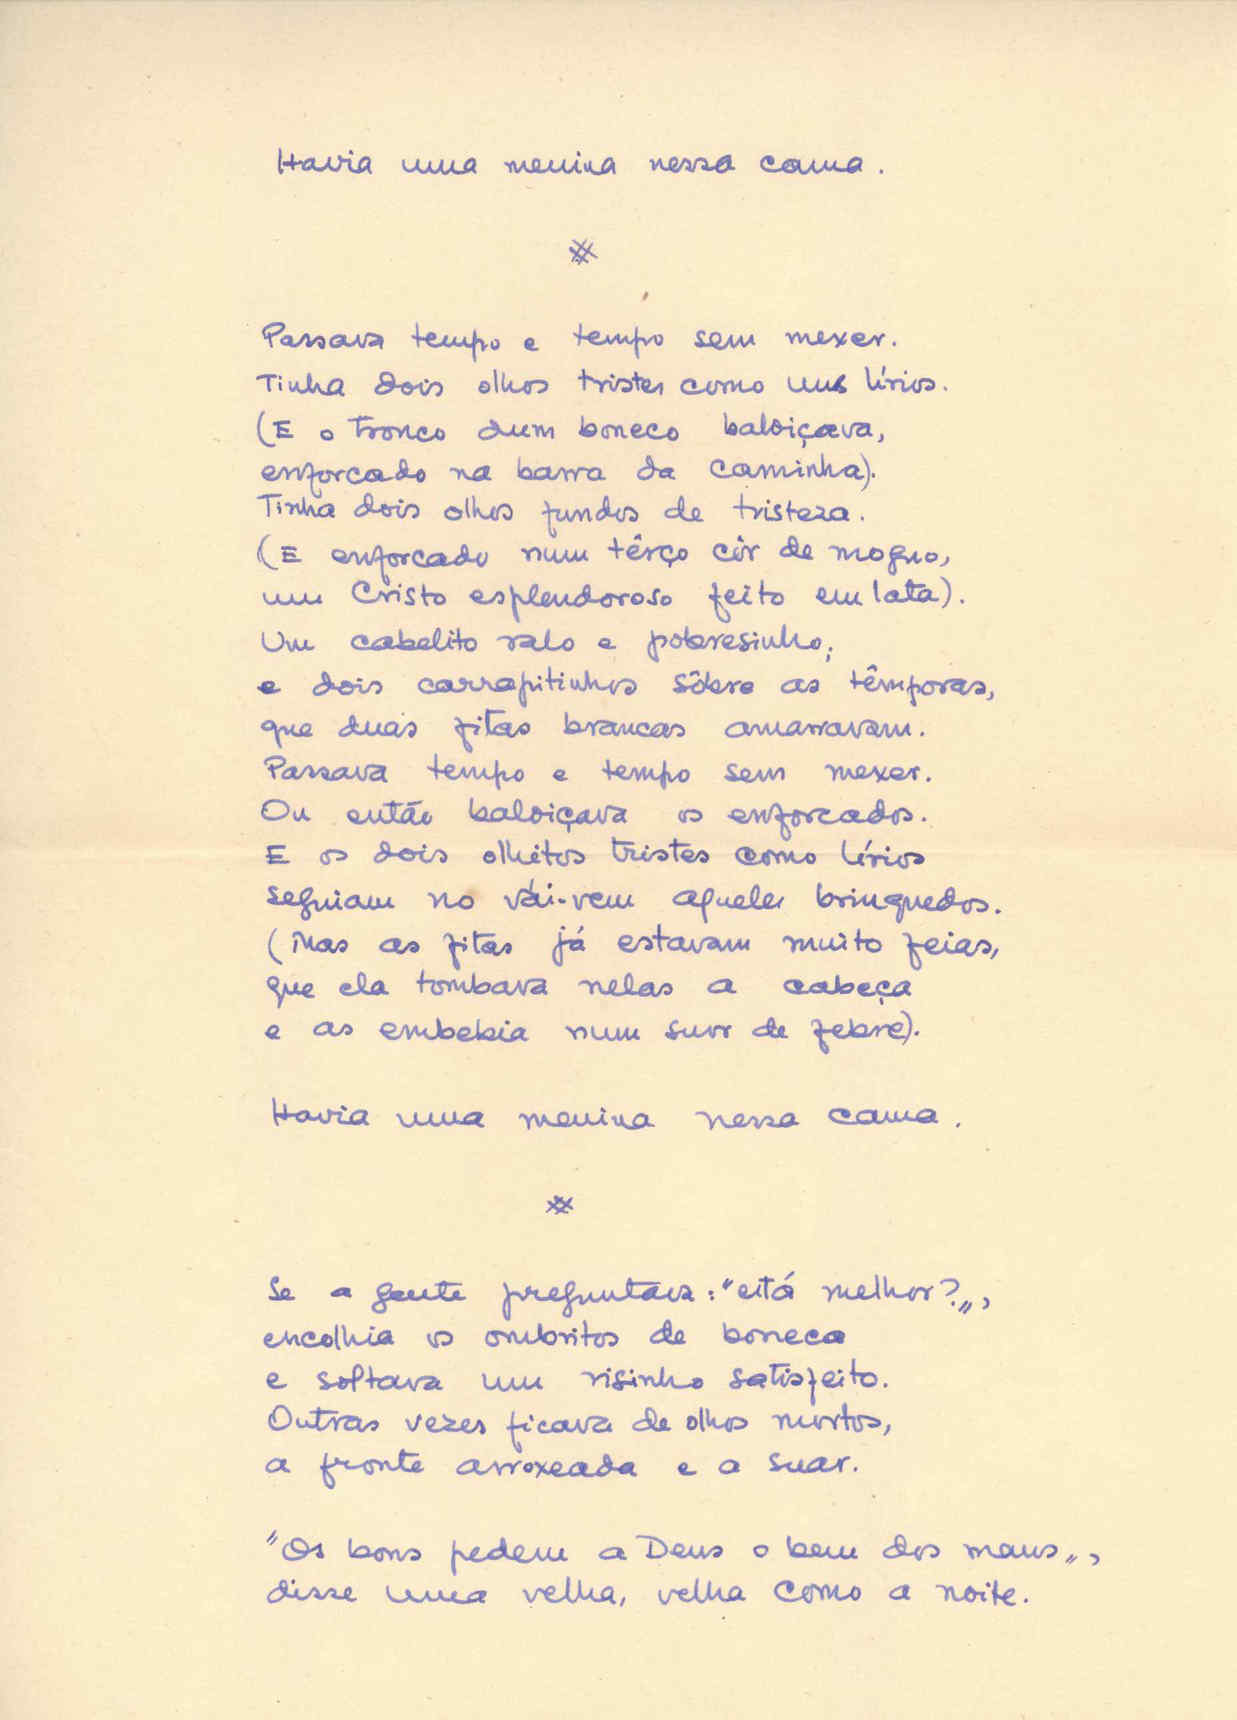 Havia uma menina nessa cama.
Passava tempo e tempo sem mexer.
Tinha dois olhos tristes como uns lírios.
(E o tronco dum boneco baloiçava,
enforcado na barra da caminha).
Tinha dois olhos fundos de tristeza.
(E enforcado num têrço côr de mogno,
um Cristo esplendoroso feito em lata).
Um cabelito ralo e pobresinho;
e dois carrapitinhos sôbre as têmporas,
que duas fitas brancas amarravam.
Passava tempo e tempo sem mexer.
Ou então baloiçava os enforcados.
E os dois olhitos tristes como lírios
seguiam no vái-vem aqueles brinquedos.
(Mas as fitas já estavam muito feias,
que ela tombava nelas a cabeça
e as embebia num suor de febre).
Havia uma menina nessa cama.
Se a gente preguntava: "está melhor?",
encolhia os ombritos de boneca
e soltava um risinho satisfeito.
Outras vezes ficava de olhos mortos,
a fronte arroxeada e a suar.
"Os bons pedem a Deus o bem dos maus",
disse uma velha, velha como a noite.